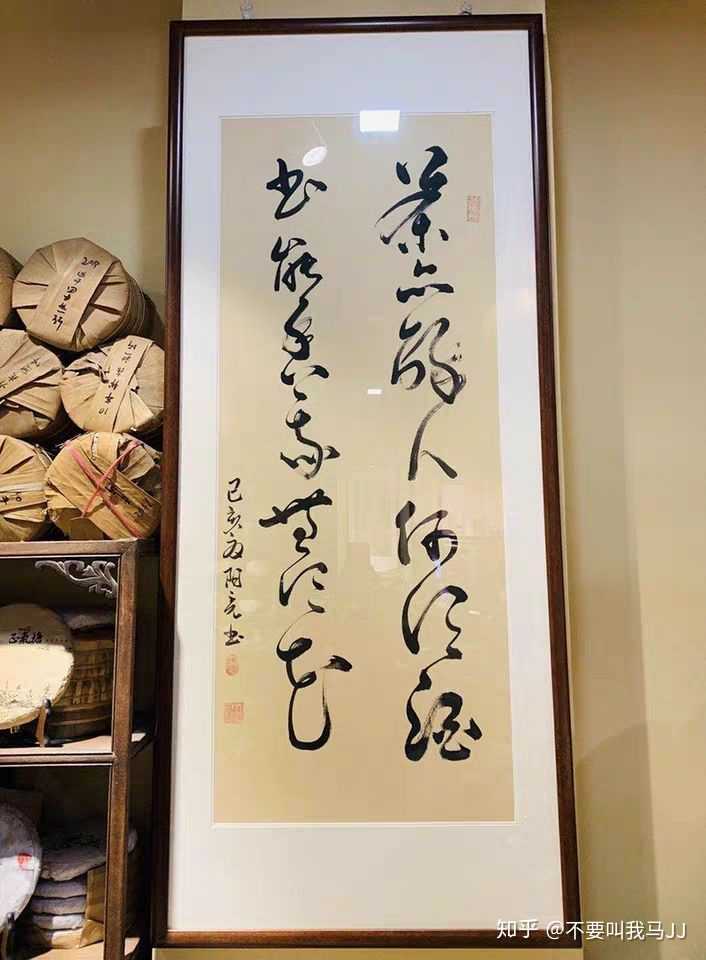 茶亦醉人何须酒
书能香我無须花
己亥夏阳亮书
知乎 @不要叫我马JJ